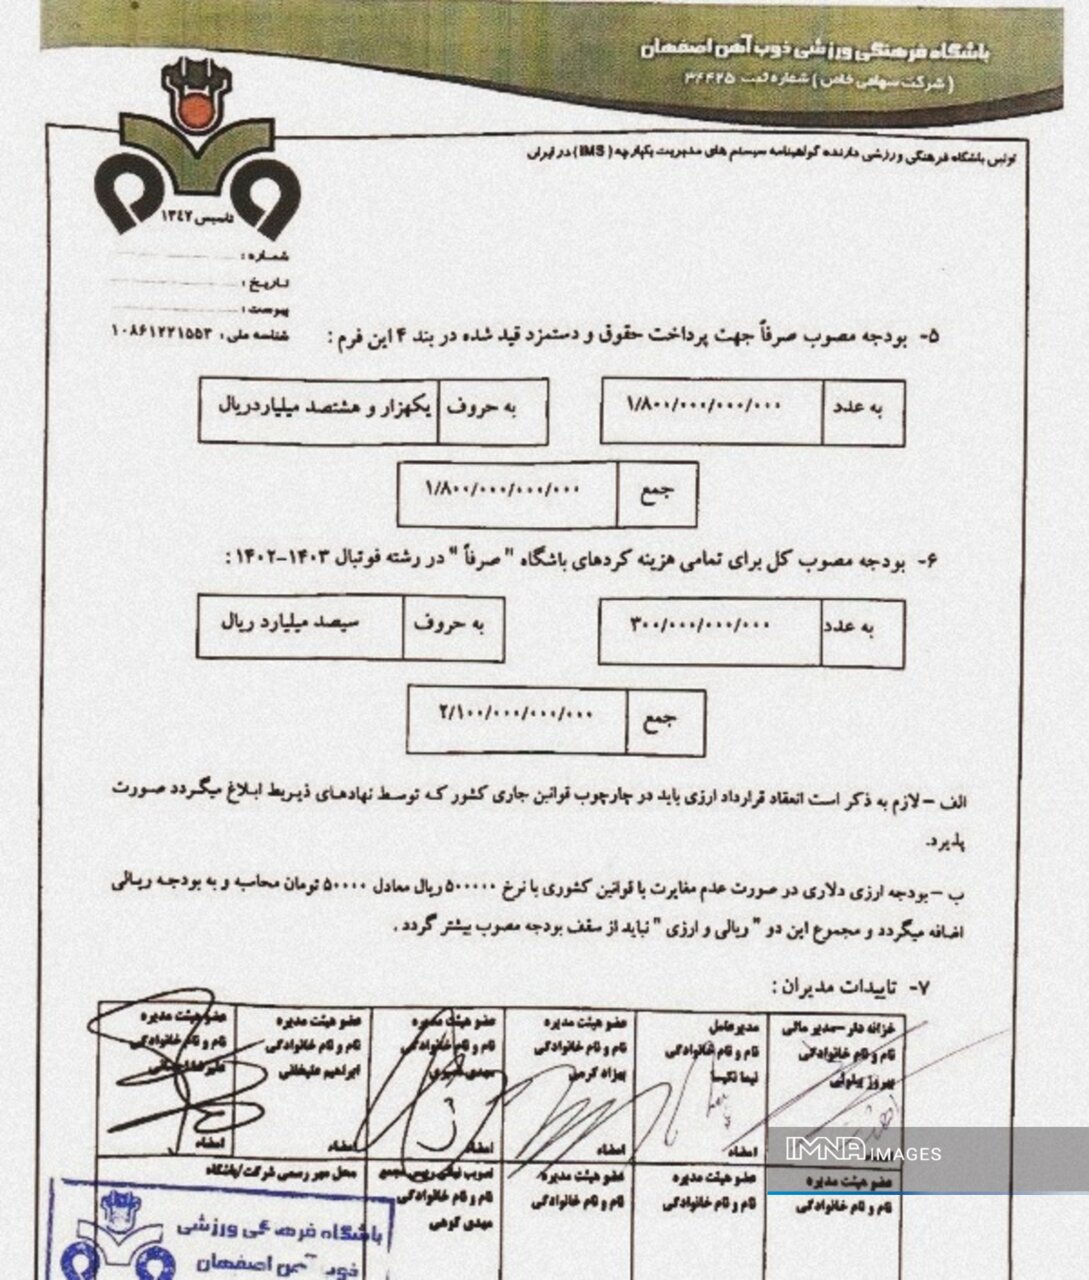 باشگاه فرهنگی ورزشی ذوب آهن اصفهان
( شرکت سهامی خاص ) شماره ثبت ۳۴۴۲۵
اولین باشگاه فرهنگی ورزشی دارنده گواهینامه سیستم های مدیریت یکپارچه ( IMS ) در ایران
تاسیس ۱۳٤۷
شماره :
تاریخ :
پیوست :
شناسه ملی : ۱۰۸۶۱۲۲۱۵۵۳
۵- بودجه مصوب صرفاً جهت پرداخت حقوق و دستمزد قید شده در بند ۴ این فرم :
به عدد ۱/۸۰۰/۰۰۰/۰۰۰/۰۰۰ به حروف یکهزار و هشتصد میلیاردریال
جمع ۱/۸۰۰/۰۰۰/۰۰۰/۰۰۰
۶- بودجه مصوب کل برای تمامی هزینه کردهای باشگاه " صرفاً " در رشته فوتبال ۱۴۰۳-۱۴۰۲ :
به عدد ۳۰۰/۰۰۰/۰۰۰/۰۰۰ به حروف سیصد میلیارد ریال
جمع ۲/۱۰۰/۰۰۰/۰۰۰/۰۰۰
الف – لازم به ذکر است انعقاد قرارداد ارزی باید در چارچوب قوانین جاری کشور که توسط نهادهای ذیربط ابلاغ میگردد صورت
پذیرد.
ب – بودجه ارزی دلاری در صورت عدم مغایرت با قوانین کشوری با نرخ ۵۰۰۰۰۰ ریال معادل ۵۰۰۰۰ تومان محاسبه و به بودجه ریالی
اضافه میگردد و مجموع این دو " ریالی و ارزی " نباید از سقف بودجه مصوب بیشتر گردد .
۷- تاییدات مدیران :
خزانه دار – مدیر مالی مدیرعامل عضو هیئت مدیره عضو هیئت مدیره عضو هیئت مدیره عضو هیئت مدیره
نام و نام خانوادگی نام و نام خانوادگی نام و نام خانوادگی نام و نام خانوادگی نام و نام خانوادگی نام و نام خانوادگی
بهروز نیما نکیسا بهزاد کرمی مهدی ابراهیم علیخانی
امضاء امضاء امضاء امضاء امضاء
عضو هیئت مدیره عضو هیئت مدیره عضو هیئت مدیره تصویب نهائی رییس مجمع محل مهر رسمی شرکت/باشگاه
نام و نام خانوادگی نام و نام خانوادگی نام و نام خانوادگی نام و نام خانوادگی
مهدی کوهی
باشگاه فرهنگی ورزشی
ذوب آهن اصفهان
IMNA IMAGES